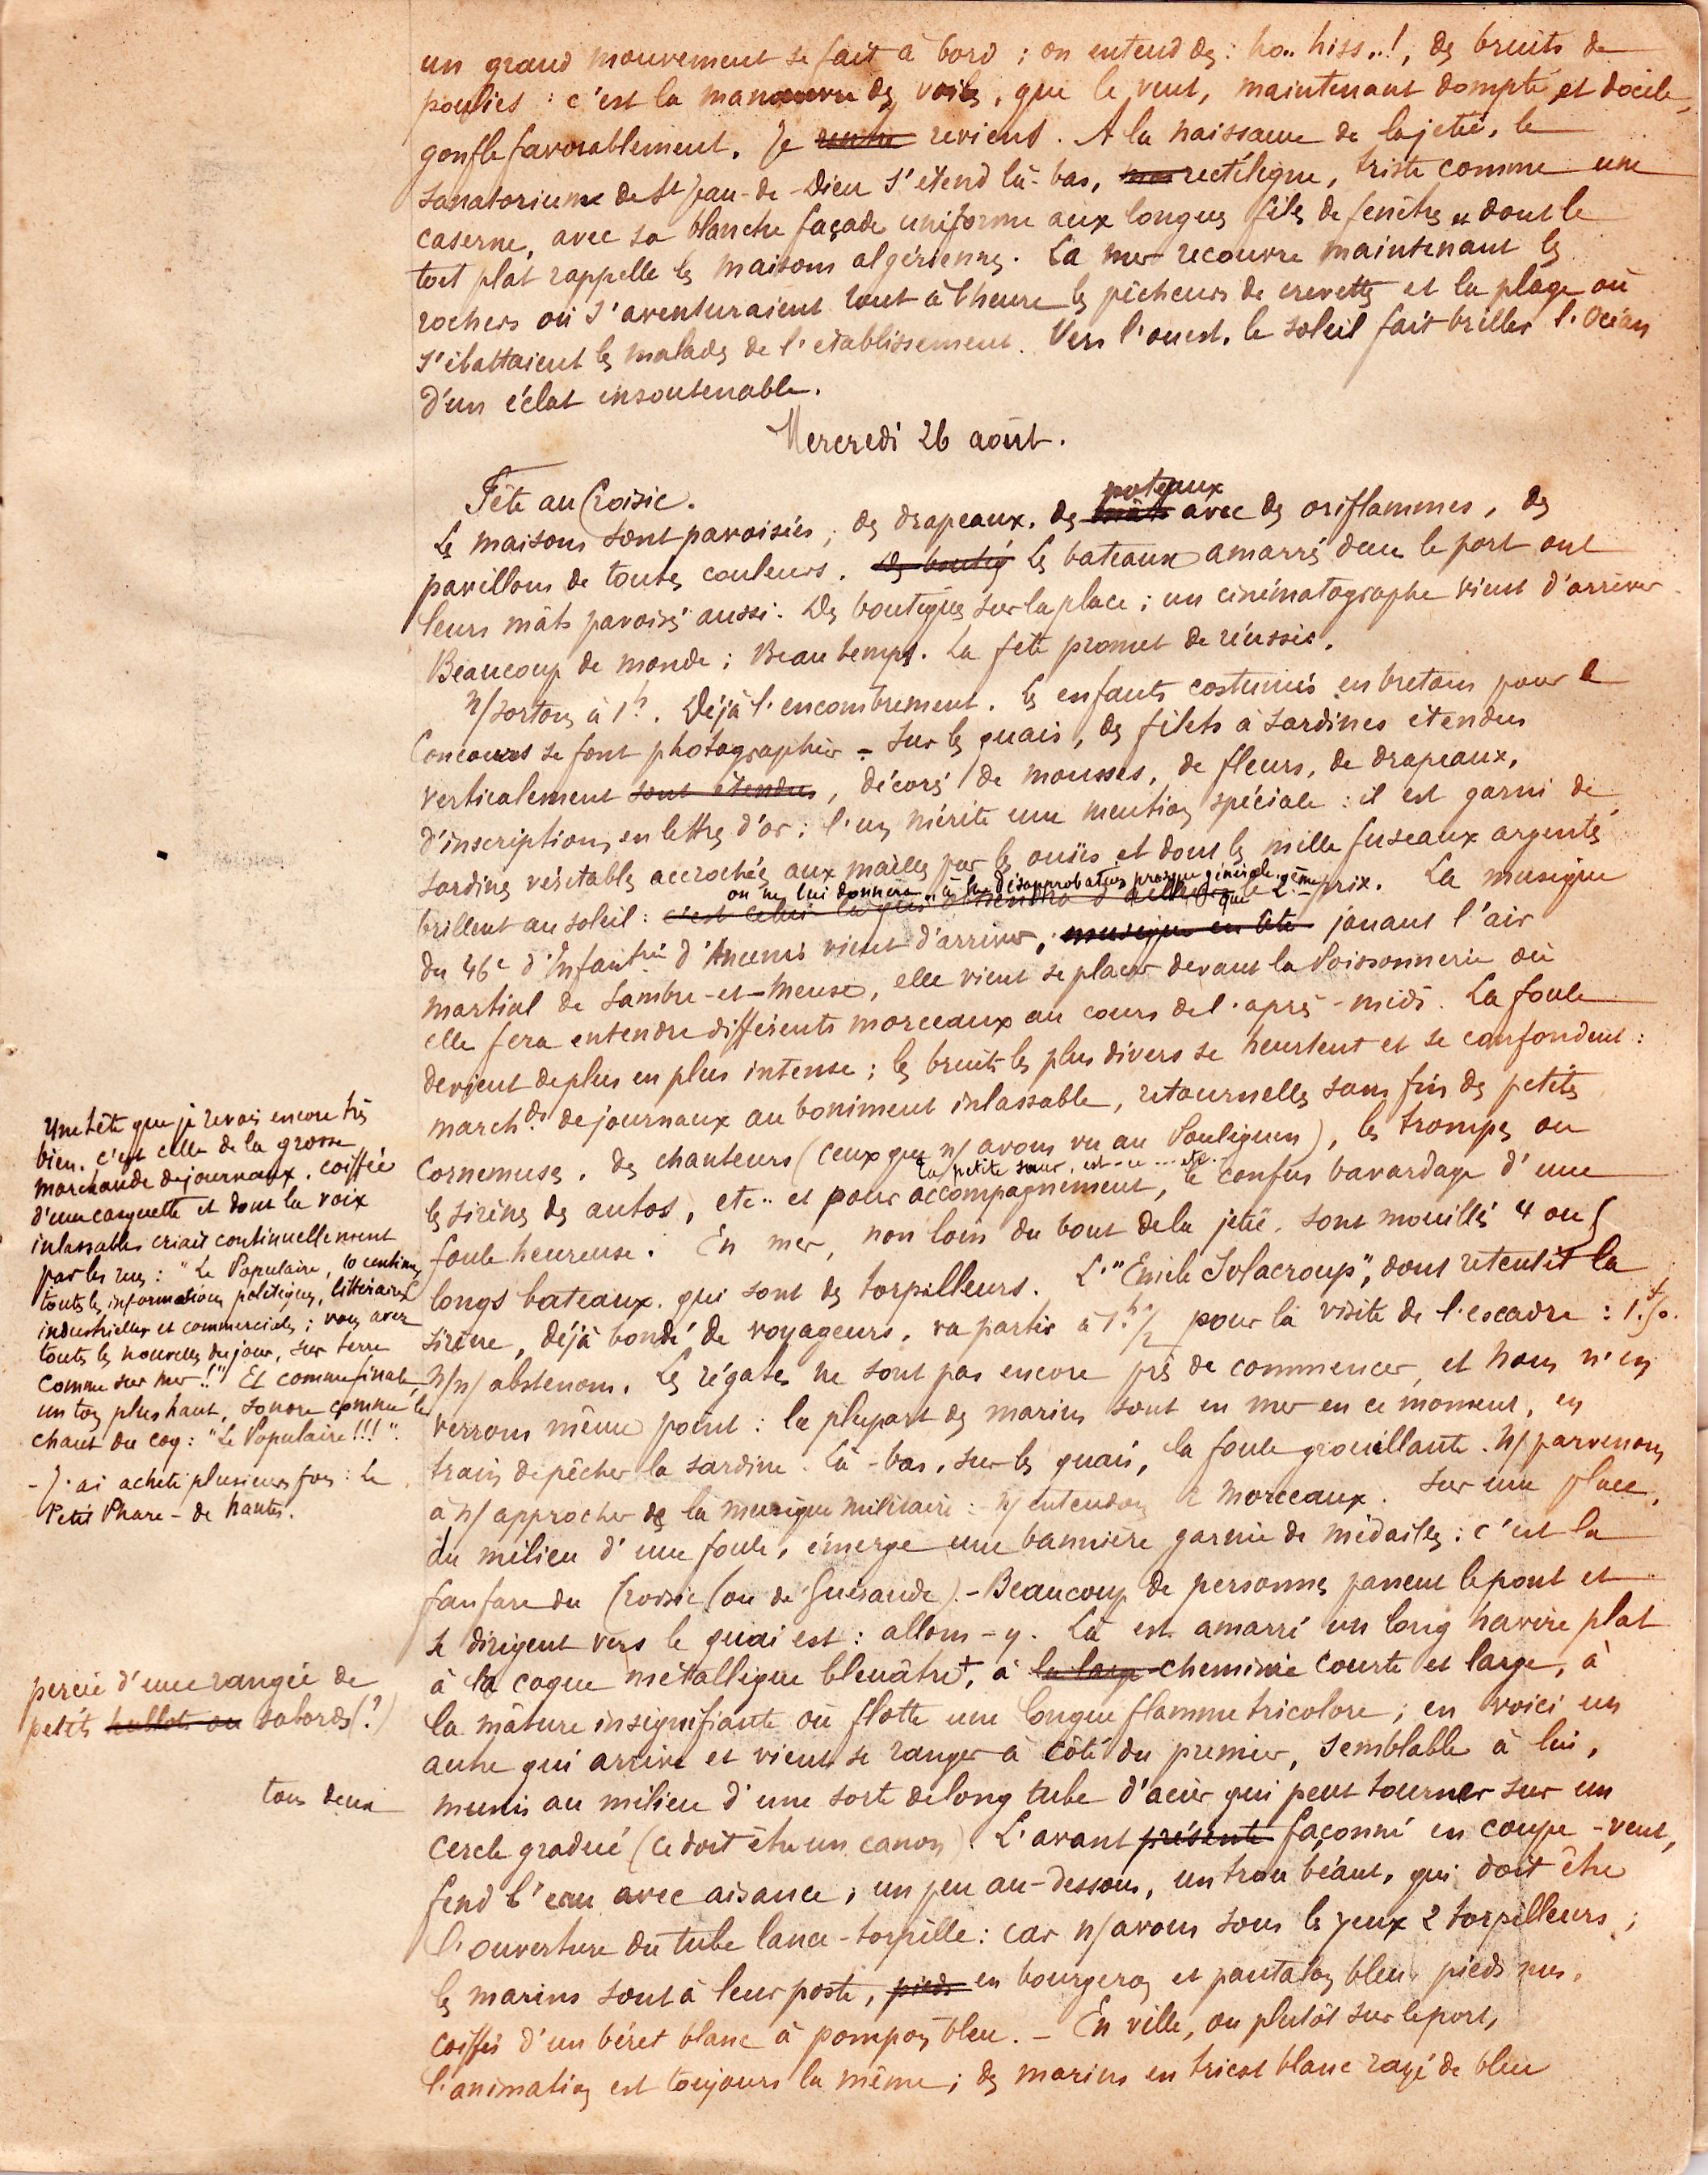 un grand mouvement se fait à bord ; on entend des : ho.. hiss..!, des bruits de
poulies : c'est la manœuvre des voiles, que le vent, maintenant dompté et docile,
gonfle favorablement. Je rentre reviens. A la naissance de la jetée, le
sanatorium de St Jean-de-Dieu s'étend là-bas, rectiligne, triste comme une
caserne, avec sa blanche façade uniforme aux longues files de fenêtres, dont le
toit plat rappelle les maisons algériennes. La mer recouvre maintenant les
rochers où s'aventuraient tout à l'heure les pêcheurs de crevettes et la plage où
s'ébattaient les malades de l'établissement. Vers l'ouest, le soleil fait briller l'Océan
d'un éclat insoutenable.
Mercredi 26 août.
Fête au Croisic.
poteaux
Les maisons sont pavoisées ; des drapeaux, des mâts avec des oriflammes, des
pavillons de toutes couleurs. Des boutiq Les bateaux amarrés dans le port ont
leurs mâts pavoisés aussi. Des boutiques sur la place ; un cinématographe vient d'arriver.
Beaucoup de monde ; Beau temps. La fête promet de réussir.
N/sortons à 1h. Déjà l'encombrement. Les enfants costumés en bretons pour le
Concours se font photographier – Sur les quais, des filets à sardines étendus
verticalement sont étendus, décorés de mousses, de fleurs, de drapeaux,
d'inscriptions en lettres d'or ; l'un mérite une mention spéciale : il est garni de
sardines véritables accrochées aux mailles par les ouïes et dont les mille fuseaux argentés
on ne lui donnera, à la désapprobation presque générale, que
brillent au soleil : c'est celui-là qui obtiendra d'ailleurs le 2ème prix. La musique
du 46e d'Infantrie d'Ancenis vient d'arriver, musique en tête jouant l'air
martial de Sambre-et-Meuse, elle vient se placer devant la Poissonnerie où
elle fera entendre différents morceaux au cours de l'après-midi. La foule
devient de plus en plus intense ; les bruits les plus divers se heurtent et se confondent :
marchds de journaux au boniment inlassable, ritournelles sans fin des petites
cornemuses, des chanteurs (ceux que n/ avons vu au Pouliguen), les trompes ou
La petite sœur, est-ce ... etc.
les sirènes des autos, etc.. et pour accompagnement, le confus bavardage d'une
foule heureuse. En mer, non loin du bout de la jetée, sont mouillés 4 ou 5
longs bateaux, qui sont des torpilleurs. L'"Emile Solacroup", dont retentit la
sirène, déjà bondé de voyageurs, va partir à 1h ½ pour la visite de l'escadre : 1.f50.
N/n/ abstenons. Les régates ne sont pas encore près de commencer, et nous n'en
verrons même point : la plupart des marins sont en mer en ce moment, en
train de pêcher la sardine. Là-bas, sur les quais, la foule grouillante. N/ parvenons
à n/ approcher de la musique militaire : n/ entendons 2 morceaux. Sur une place,
du milieu d'une foule, émerge une bannière garnie de médailles : c'est la
fanfare du Croisic (ou de Guérande). – Beaucoup de personnes passent le pont et
se dirigent vers le quai est : allons-y. Là est amarré un long navire plat
à la coque métallique bleuâtre+, à la large cheminée courte et large, à
la mâture insignifiante où flotte une longue flamme tricolore ; en voici un
autre qui arrive et vient se ranger à côté du premier, semblable à lui,
munis au milieu d'une sorte de long tube d'acier qui peut tourner sur un
cercle gradué (ce doit être un canon). L'avant présente façonné en coupe-vent,
fend l'eau avec aisance ; un peu au-dessous, un trou béant, qui doit être
l'ouverture du tube lance-torpille : car n/ avons sous les yeux 2 torpilleurs ;
les marins sont à leur poste, pieds en bourgeron et pantalon bleu, pieds nus,
coiffés d'un béret blanc à pompon bleu. – En ville, ou plutôt sur le port,
l'animation est toujours la même ; des marins en tricot blanc rayé de bleu
Une tête que je revois encore très
bien, c'est celle de la grosse
marchande de journaux, coiffée
d'une casquette et dont la voix
inlassable criait continuellement
par les rues : "Le Populaire, 10 centimes,
toutes les informations politiques, littéraires,
industrielles et commerciales ; vous avez
toutes les nouvelles du jour, sur terre
comme sur mer !!" Et comme finale,
un ton plus haut, sonore comme le
chant du coq : "Le Populaire !!!".
– J'ai acheté plusieurs fois : Le
Petit Phare – de Nantes.
percée d'une rangée de
petits hublots ou sabords (?)
tous deux